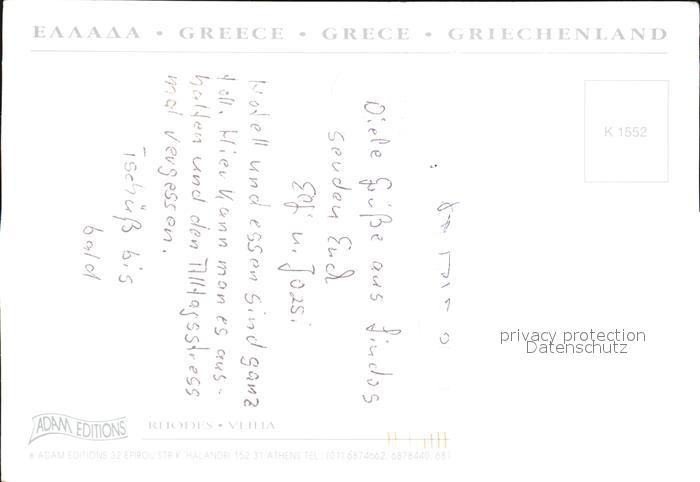 ΕΛΛΑΔΑ • GREECE • GRECE • GRIECHENLAND
K 1552
Viele Grüße aus Lindos
senden Euch
u. Jozsi
Hotel und essen sind ganz
toll. Hier kann man es aus-
halten und den Alltagsstress
mal vergessen.
Tschüß bis
bald
privacy protection
Datenschutz
ADAM EDITIONS
RHODES •
ADAM EDITIONS 32 EPIROU STR K. HALANDRI 152 31 ATHENS TEL.: (01) 6874662, 6878440, 681